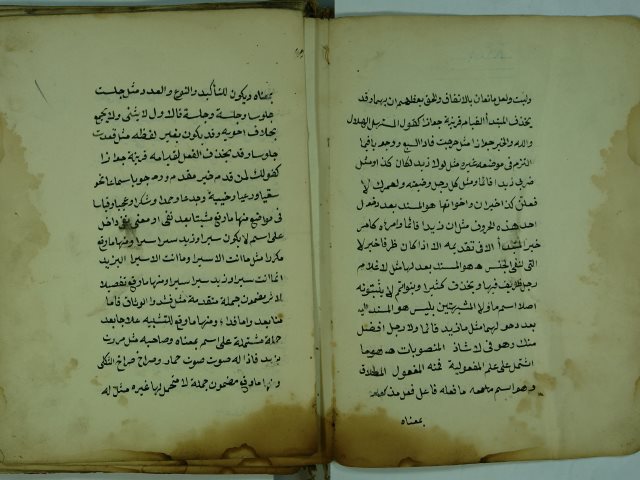 وليت ولعل مانعان بالاتفاق والحق بعضهم ان بهما وقد
يحذف المبتدأ لقيام قرينة جوازا كقول المستهل الهلال
والله والخبر جوازا مثل خرجت فاذا السبع ووجوبا فيما
التزم في موضعه غيره مثل لولا زيد لكان كذا ومثل
ضربي زيدا قائما ومثل كل رجل وضيعته ولعمرك لا
فعلن كذا خبر ان واخواتها هو المسند بعد دخول
احد هذه الحروف مثل ان زيدا قائم وامره كامر
خبر المبتدأ الا في تقديمه الا اذا كان ظرفا خبر لا
التي لنفي الجنس هو المسند بعد دخولها مثل لا غلام
رجل ظريف فيها ويحذف كثيرا وبنو تميم لا يثبتونه
اصلا اسم ما ولا المشبهتين بليس هو المسند اليه
بعد دخولهما مثل ما زيد قائما ولا رجل افضل
منك وهو في لا شاذ المنصوبات هو ما
اشتمل على علم المفعولية فمنه المفعول المطلق
وهو اسم ما فعله فاعل فعل مذكور
بمعناه
بمعناه ويكون للتأكيد والنوع والعدد مثل جلست
جلوسا وجلسة وجلسة فالاول لا يثنى ولا يجمع
بخلاف اخويه وقد يكون بغير لفظه مثل قعدت
جلوسا وقد يحذف الفعل لقيام قرينة جوازا
كقولك لمن قدم خير مقدم ووجوبا سماعا نحو
سقيا ورعيا وخيبة وجدعا وحمدا وشكرا وعجبا وقياسا
في مواضع منها ما وقع مثبتا بعد نفي او معنى نفي داخل
على اسم لا يكون سيرا وزيد سيرا سيرا ومنها ما وقع
مكررا مثل ما انت الا سيرا وما انت الا سير البريد
انما انت سيرا وزيد سيرا سيرا ومنها ما وقع تفصيلا
لاثر مضمون جملة متقدمة مثل فشدوا الوثاق فاما
منا بعد واما فداء ومنها ما وقع للتشبيه علاجا بعد
جملة مشتملة على اسم بمعناه وصاحبه مثل مررت
بزيد فاذا له صوت صوت حمار وصراخ صراخ الثكلى
ومنها ما وقع مضمون جملة لا محتمل لها غيره مثل له